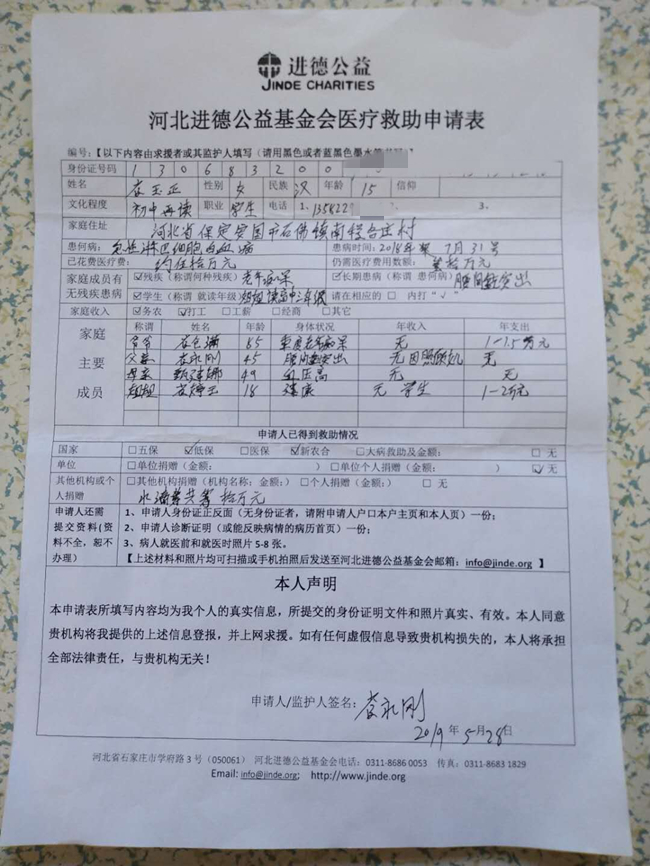 进德公益
JINDE CHARITIES
河北进德公益基金会医疗救助申请表
编号：【以下内容由求援者或其监护人填写（请用黑色或者蓝黑色墨水
身份证号码 1 3 0 6 8 3 2 0 0
姓名 玉正 性别 女 民族 汉 年龄 15 信仰
文化程度 初中再读 职业 学生 电话 1、1358229 3、
家庭住址 河北省保定安国市石佛镇南 村
患何病： 急性淋巴细胞白血病 患病时间：2018年 7月31号
已花费医疗费： 约 拾万元 仍需医疗费用数额： 拾万元
家庭成员有 ☑残疾（称谓何种残疾）老年痴呆 ☑长期患病（称谓 患何病）腰间盘突出
无残疾患病 ☑学生（称谓 就读年级） 姐姐 请在相应的 □ 内打"√"
家庭收入 ☑务农 ☑打工 □工薪 □经商 □其它
家庭主要成员 称谓 姓名 年龄 身体状况 年收入 年支出
爷爷 满 85 老年痴呆 无 1-1.5万元
父亲 永刚 45 腰间盘突出 无 无
母亲 49 血压高 无 无
姐姐 18 健康 无 学生 1-2万元
申请人已得到救助情况
国家 □五保 ☑低保 □医保 ☑新农合 □大病救助及金额： □ 无
单位 □单位捐赠（金额： ） □单位个人捐赠（金额： ） ☑ 无
其他机构或个人捐赠 □其他机构捐赠（机构名称；金额） □个人捐赠（金额： ） □ 无
水滴筹共筹 拾万元
申请人还需提交资料(资料不全，恕不办理） 1、申请人身份证正反面（无身份证者，请附申请人户口本户主页和本人页）一份；
2、申请人诊断证明（或能反映病情的病历首页）一份；
3、病人就医前和就医时照片 5-8 张。
【上述材料和照片均可扫描或手机拍照后发送至河北进德公益基金会邮箱：info@jinde.org 】
本人声明
本申请表所填写内容均为我个人的真实信息，所提交的身份证明文件和照片真实、有效。本人同意
贵机构将我提供的上述信息登报，并上网求援。如有任何虚假信息导致贵机构损失的，本人将承担
全部法律责任，与贵机构无关！
申请人/监护人签名： 永刚
2019年5月28日
河北省石家庄市学府路 3 号（050061） 河北进德公益基金会电话：0311-8686 0053 传真：0311-8683 1829
Email: info@jinde.org; http://www.jinde.org